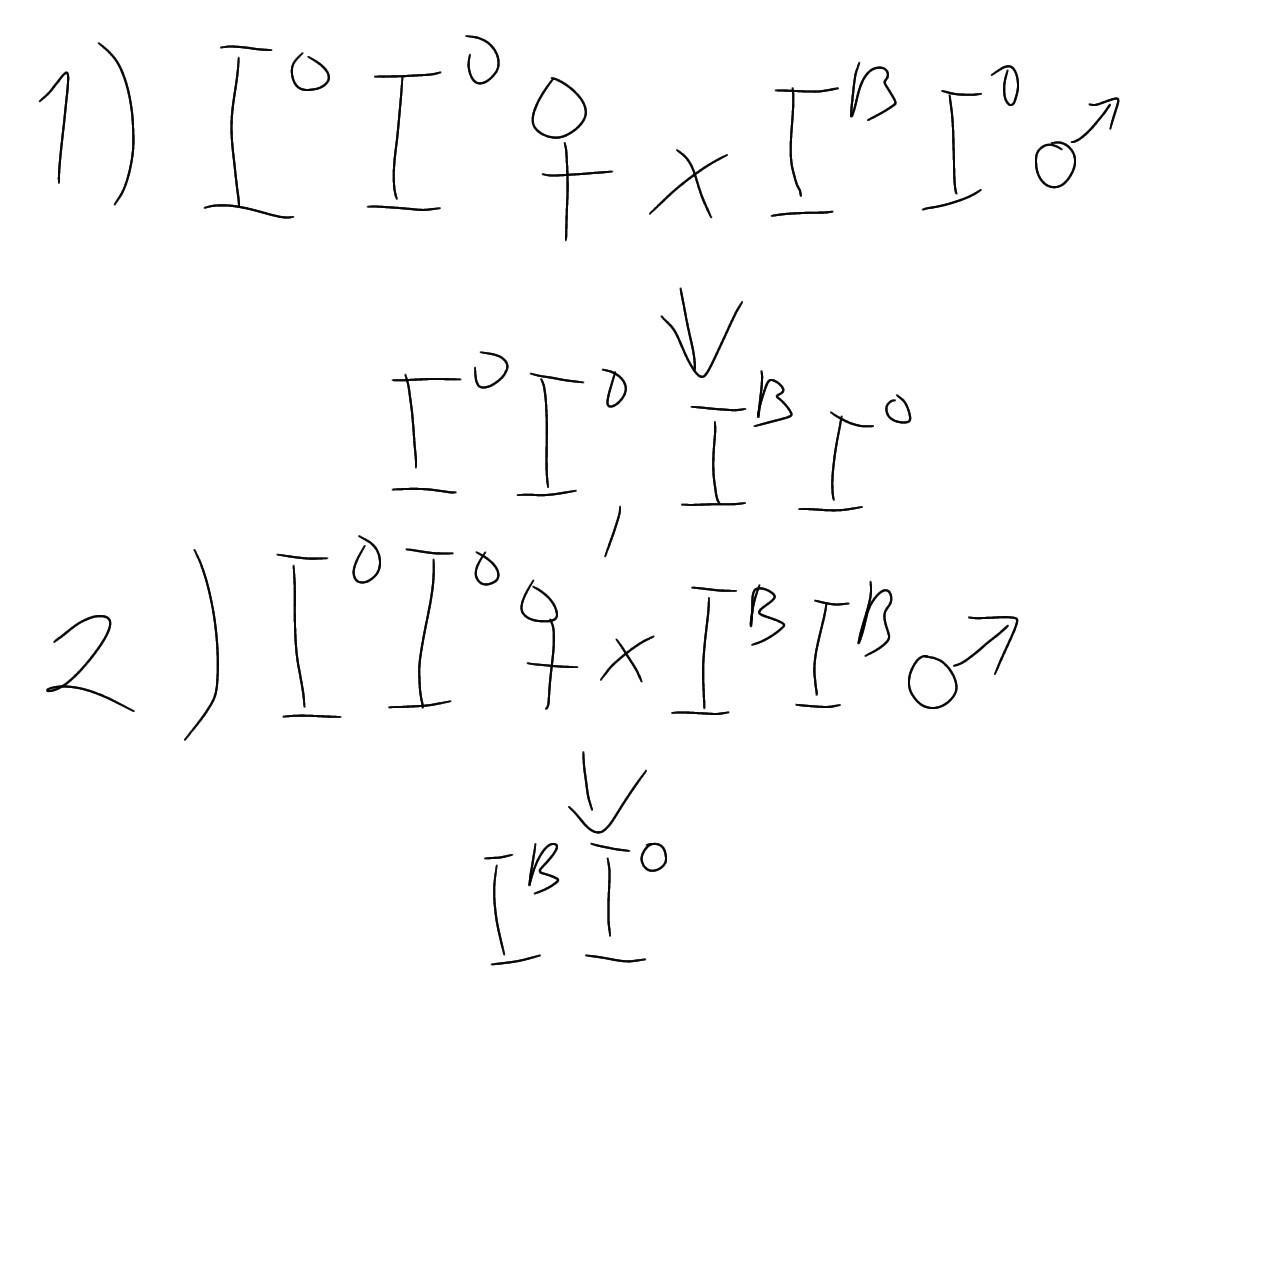 1) I⁰ I⁰ ♀ × Iᴮ I⁰ ♂
↓
I⁰ I⁰ , Iᴮ I⁰
2) I⁰ I⁰ ♀ × Iᴮ Iᴮ ♂
↓
Iᴮ I⁰